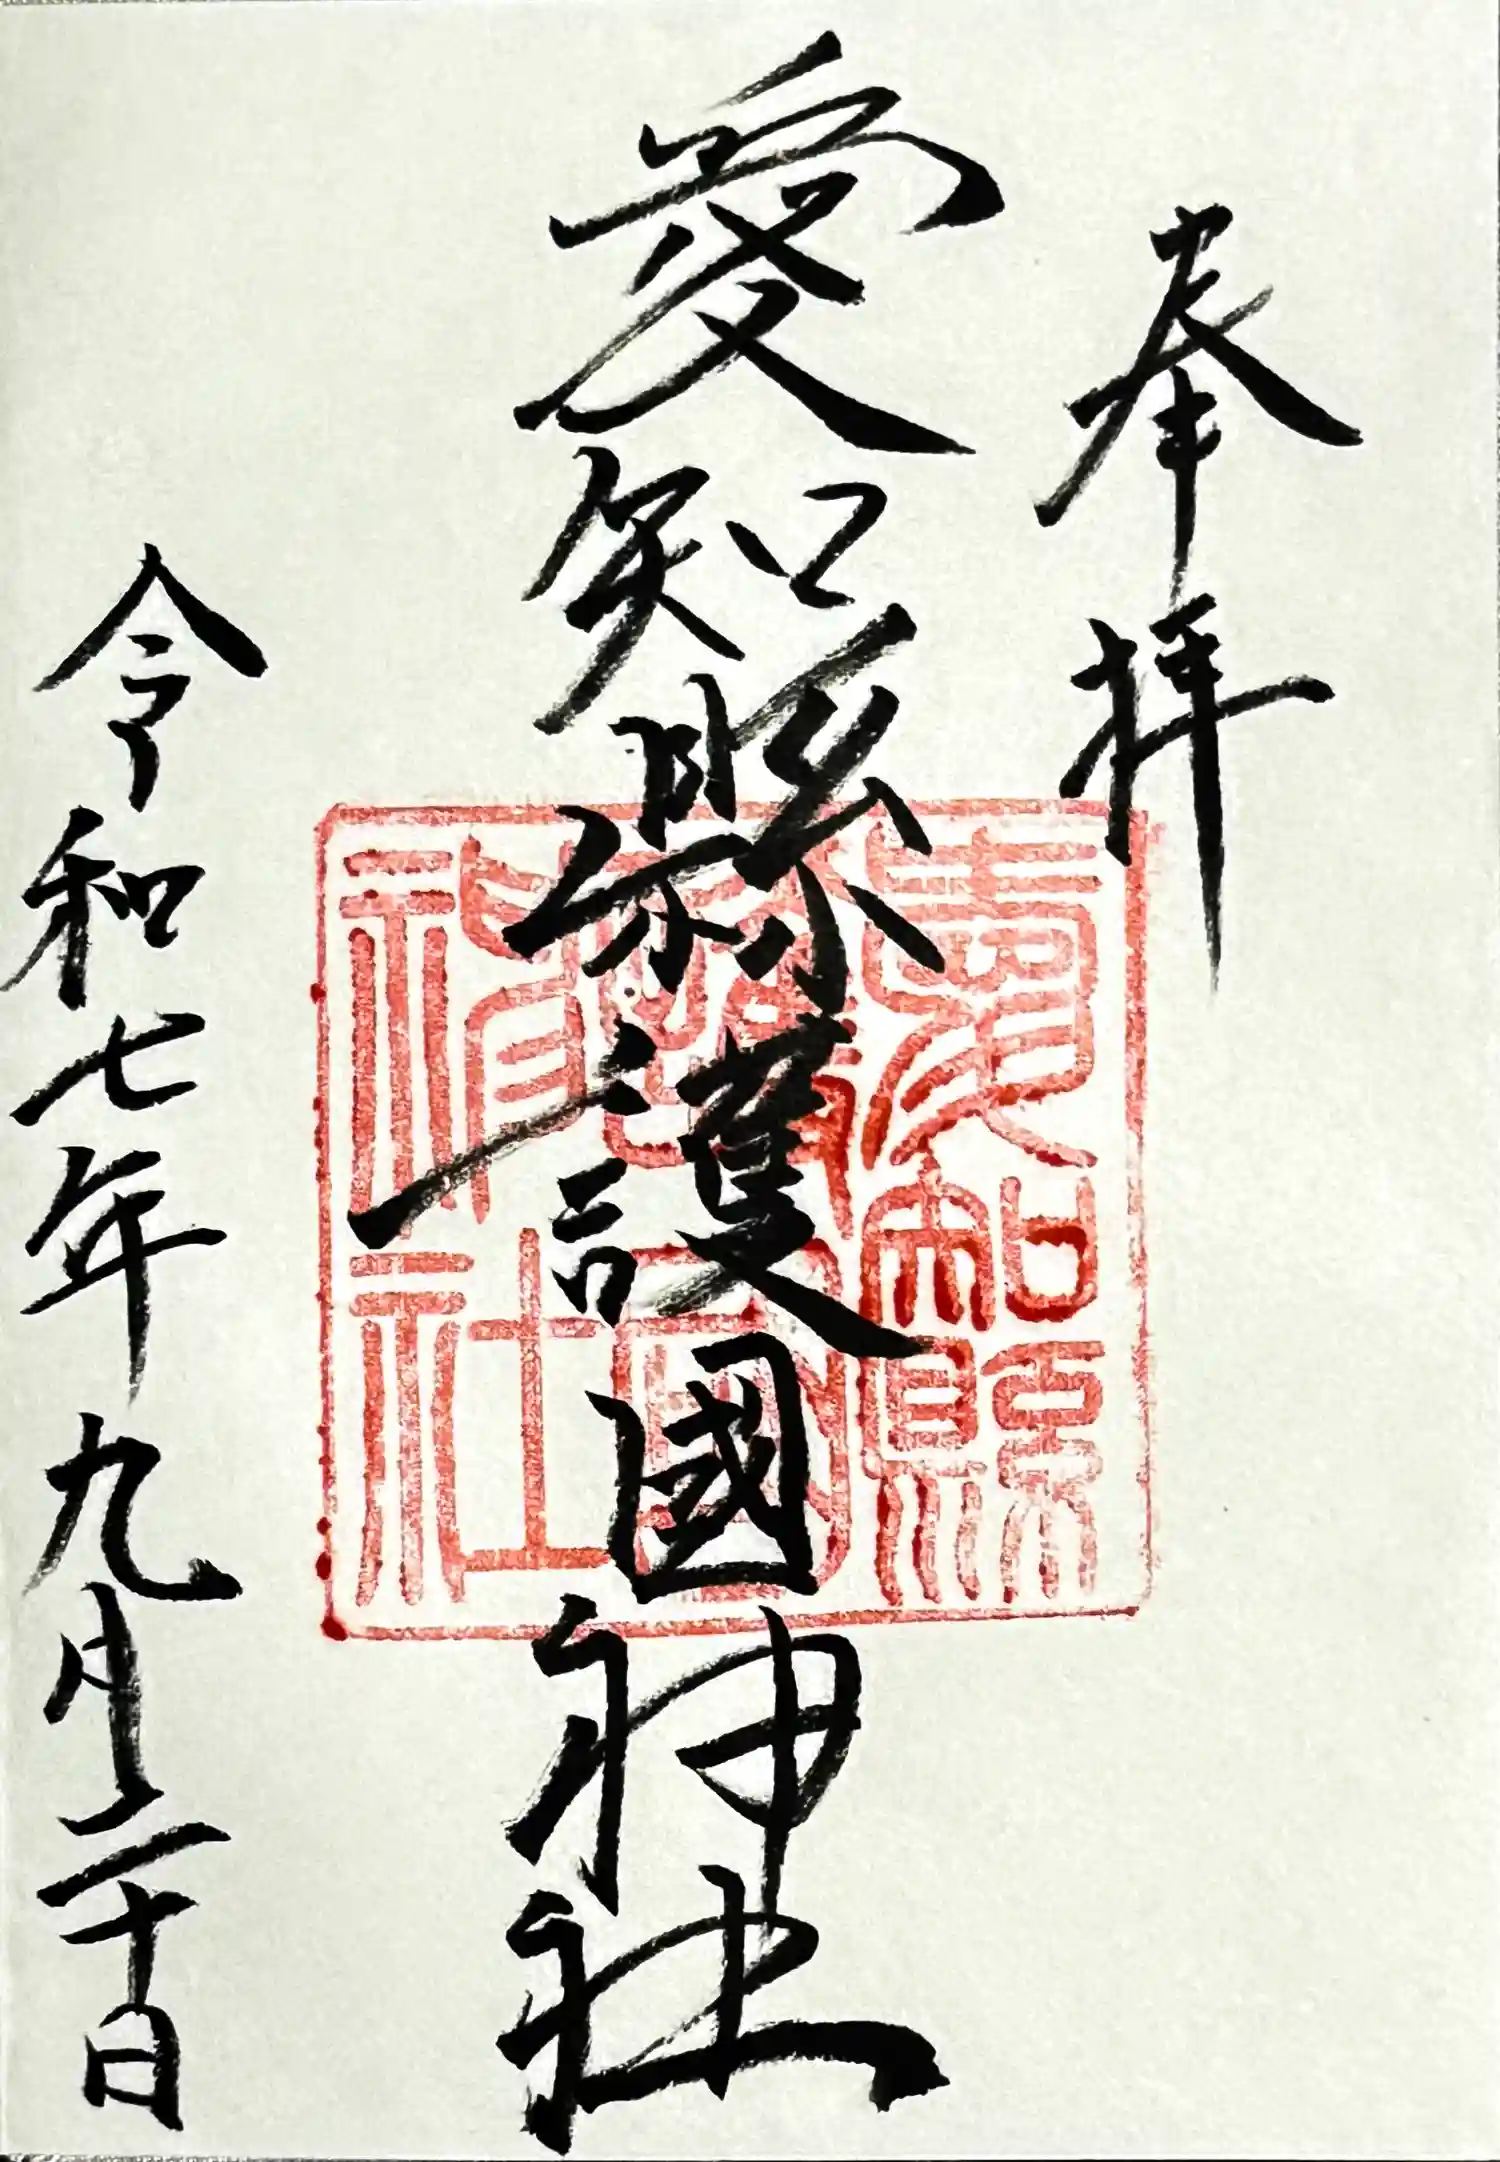 奉拝
愛知縣護國神社
愛知縣
護國
神社
令和七年九月二十日